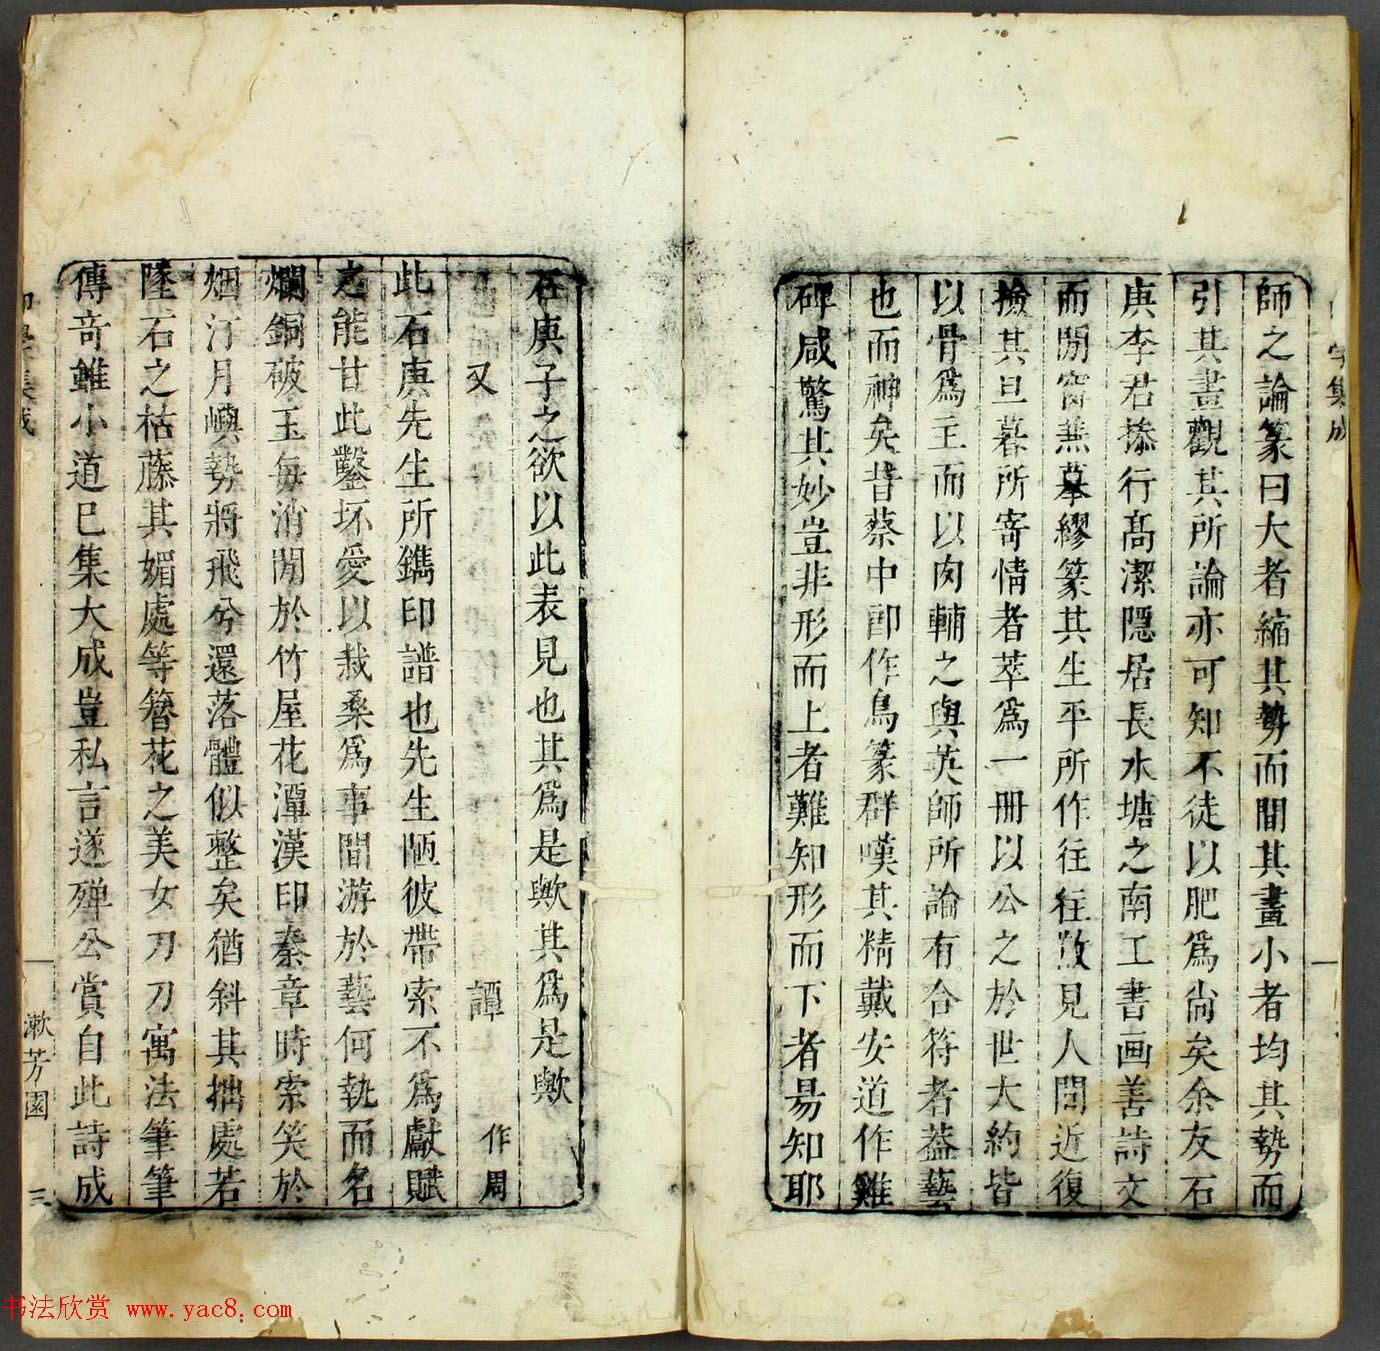 師之論篆曰大者縮其勢而間其畫小者均其勢而
引其畫觀其所論亦可知不徒以肥爲尙矣余友石
庚李君操行高潔隱居長水塘之南工書画善詩文
而閒窗無摹繆篆其生平所作往往散見人間近復
撿其旦暮所寄情者萃爲一冊以公之於世大約皆
以骨爲主而以肉輔之與英師所論有合符者葢藝
也而神矣昔蔡中郎作鳥篆群嘆其精戴安道作雞
碑咸驚其妙豈非形而上者難知形而下者易知耶
字集成
石庚子之欲以此表見也其爲是歟其爲是歟
又 譚 作周
此石庚先生所鐫印譜也先生陋彼帶索不爲獻賦
之能甘此鑿坏愛以栽桑爲事間游於藝何執而名
爛銅破玉每消閒於竹屋花潭漢印秦章時索笑於
烟汀月嶼勢將飛兮還落體似整矣猶斜其拙處若
墜石之枯藤其媚處等簪花之美女刀刀寓法筆筆
傳奇雖小道已集大成豈私言遂殫公賞自此詩成
集成
漱芳園
三
书法欣赏 www.yac8.com